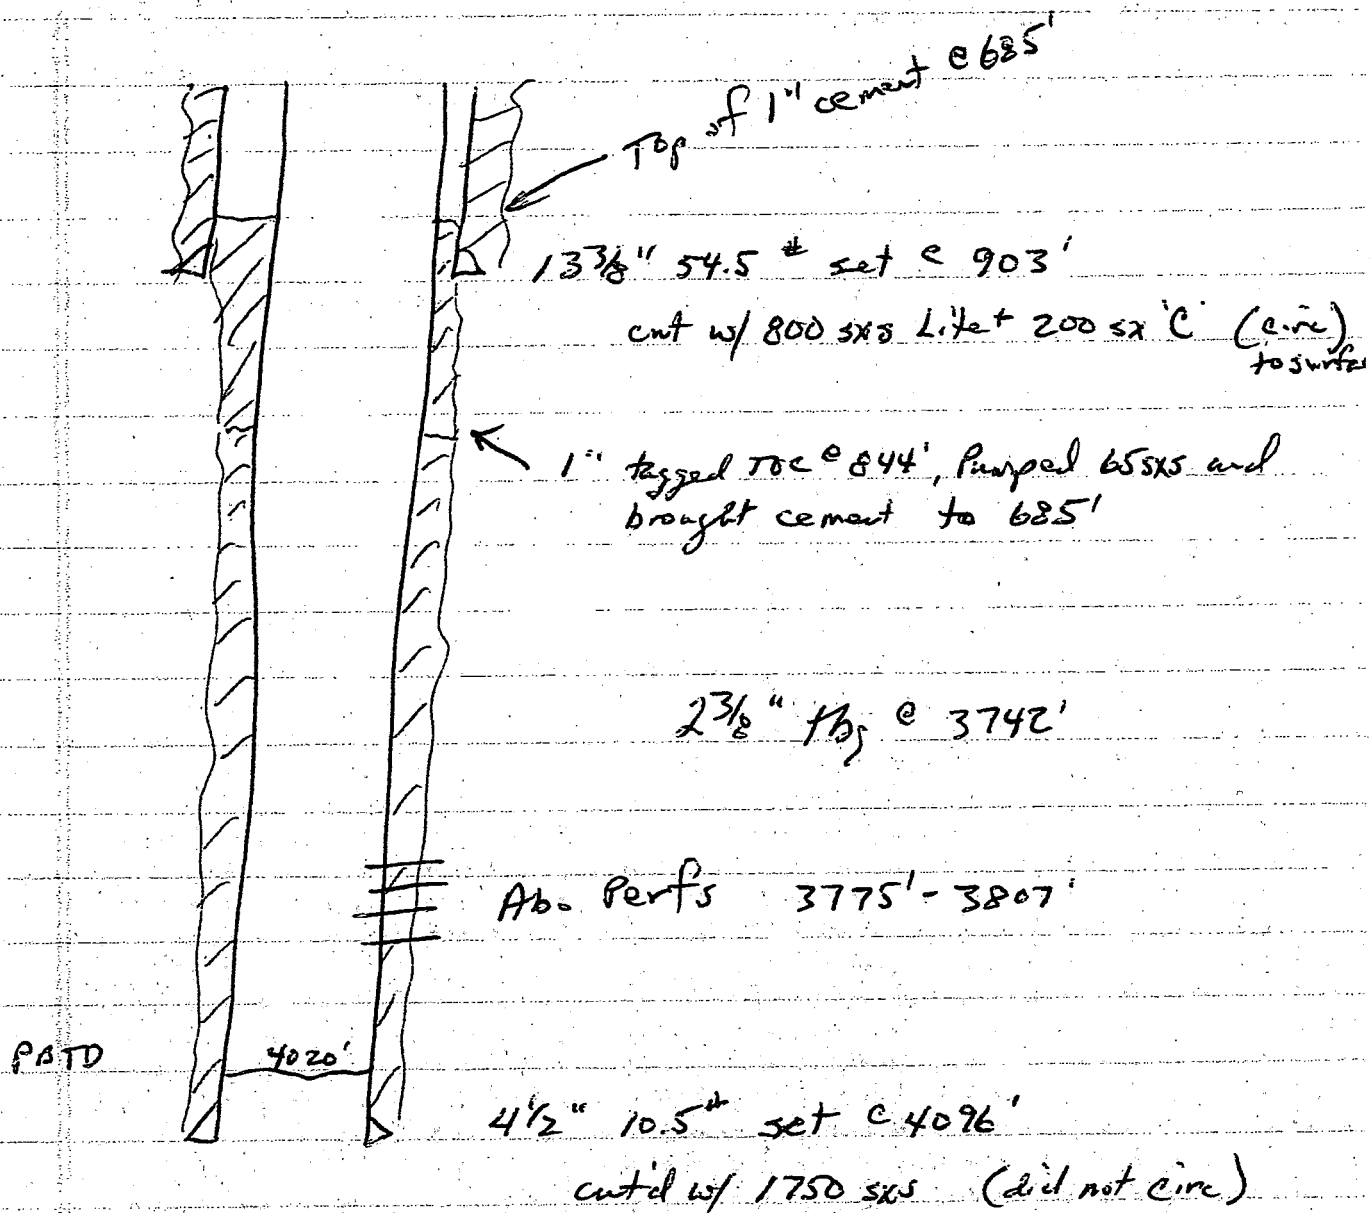 Top of 1" cement @ 685'
13 3/8" 54.5 # set @ 903'
cmt w/ 800 sxs Lite + 200 sx 'C' (circ)
to surfac
1" tagged TOC @ 844', Pumped 65 sxs and
brought cement to 685'
2 3/8" tbg @ 3742'
Abo Perfs 3775' - 3807'
PBTD 4020'
4 1/2" 10.5# set @ 4096'
cmt'd w/ 1750 sxs (did not circ)